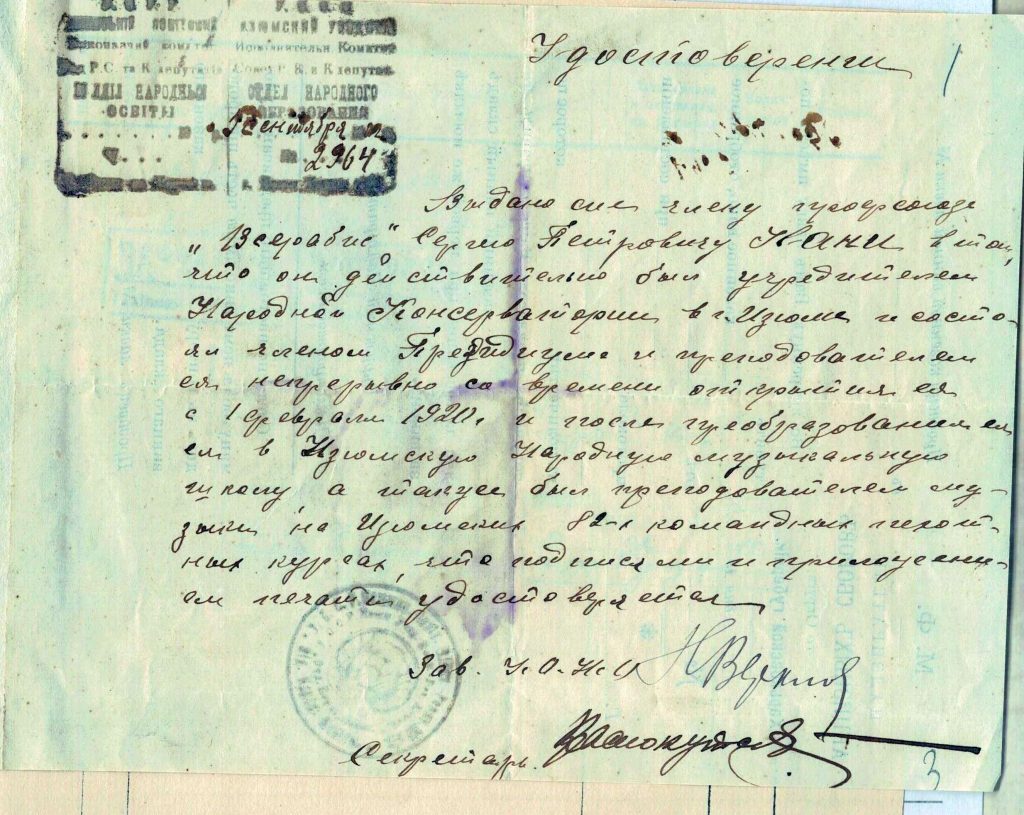 У.С.С.Р.
ИЗЮМСКИЙ УЕЗДНЫЙ
Исполнительн Комитет
Р.С. та К депутатів Совет Р. К. и К депутат
ВІДДІЛ НАРОДНЬОЇ ОТДЕЛ НАРОДНОГО
ОСВІТИ ОБРАЗОВАНИЯ
Сентября
2964
Удостоверение
1
Выдано сие члену профсоюза
„Всерабис" Сергею Петровичу в том,
что он действительно был учредителем
Народной Консерватории в г. Изюме и состо-
ял членом Президиума и преподователем
ея непрерывно со времени открытия ея
с 1 февраля 1920 г и после преобразования ея
в Изюмскую Народную музыкальную
школу а также был преподователем му-
зыки на Изюмских 82-х командных пехот-
ных курсах, что подписями и приложени-
ем печати удостоверяется
Зав. У.О.Н.О
Секретарь
3